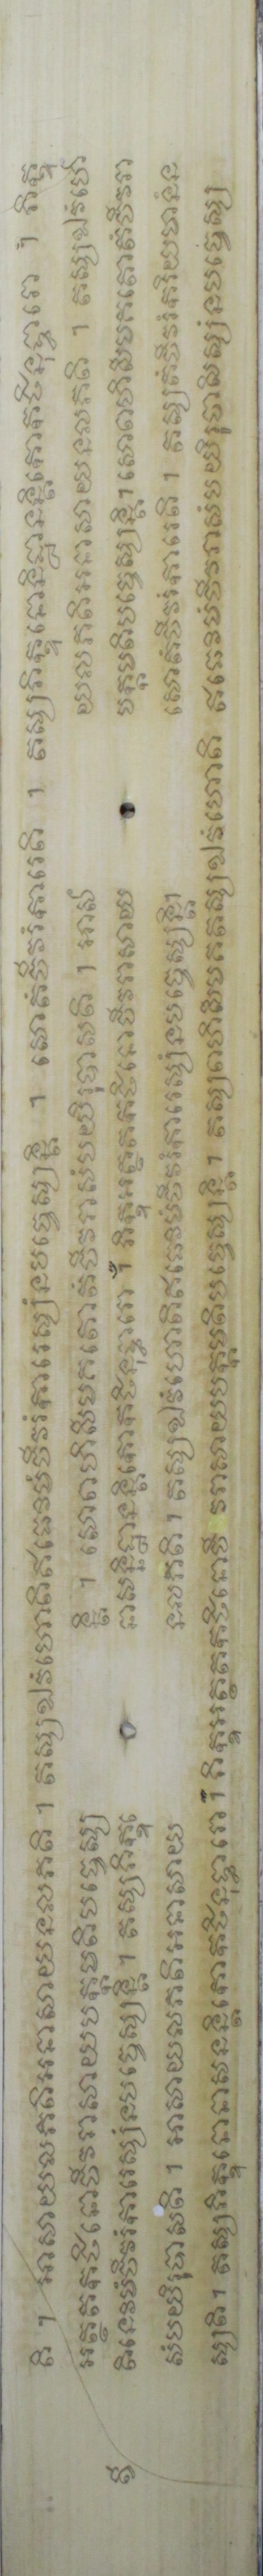 តិ ។ អាសាយលភតិអនាសាយនលភតិ ។ តស្សឯវំហោតិឥធេវិមំចីវរំការេស្សំនបច្ចេស្សន្តិ ។ សោតំចីវរំការេតិ ។ តស្សភិក្ខុនោនិដ្ឋានន្តិកោកថិនុទ្ធារោ ។ ភិក្ខុ
អត្ថតកថិនោចីវរាសាយបក្កមតិបច្ចេស្ស ន្តិ ។ សោពហិសីមគតោតំចីវរាសំបយិរុបាសតិ ។ អាសា យលភតិអនាសាយនលភតិ ។ តស្សឯវំហោ
តិនេវិមំចីវរំការេស្សំនបច្ចេស្សន្តិ ។ តស្សភិក្ខុនោ សន្និដ្ឋានន្តិកោកថិនុទ្ធារោ ។ ភិក្ខុអត្ថតកថិនោចីវរាសាយ បក្កមតិបច្ចេស្សន្តិ។ សោពហិសីមគតោតំចីវរា
សំបយិរុបាសតិ ។ អាសាយលភតិអនាសាយ នលភតិ ។ តស្សឯវំហោតិឥធេវិមំចីវរំការេស្សំនបច្ចេស្សន្តិ។ សោតំចីវរំការេតិ ។ តស្សតំចីវរំករិយមានំន
ស្សតិ។ តស្សភិក្ខុនោនាសនន្តិកោកថិនុទ្ធារោ ។ ភិក្ខុអត្ថតកថិនោចី វរាសាយបក្កមតិបច្ចេស្សន្តិ។ តស្សពហិសីមគតស្សឯវំហោតិ ឥធេវិមំចីវរាសំបយិរុបាសិស្សំនបច្ចេស្ស